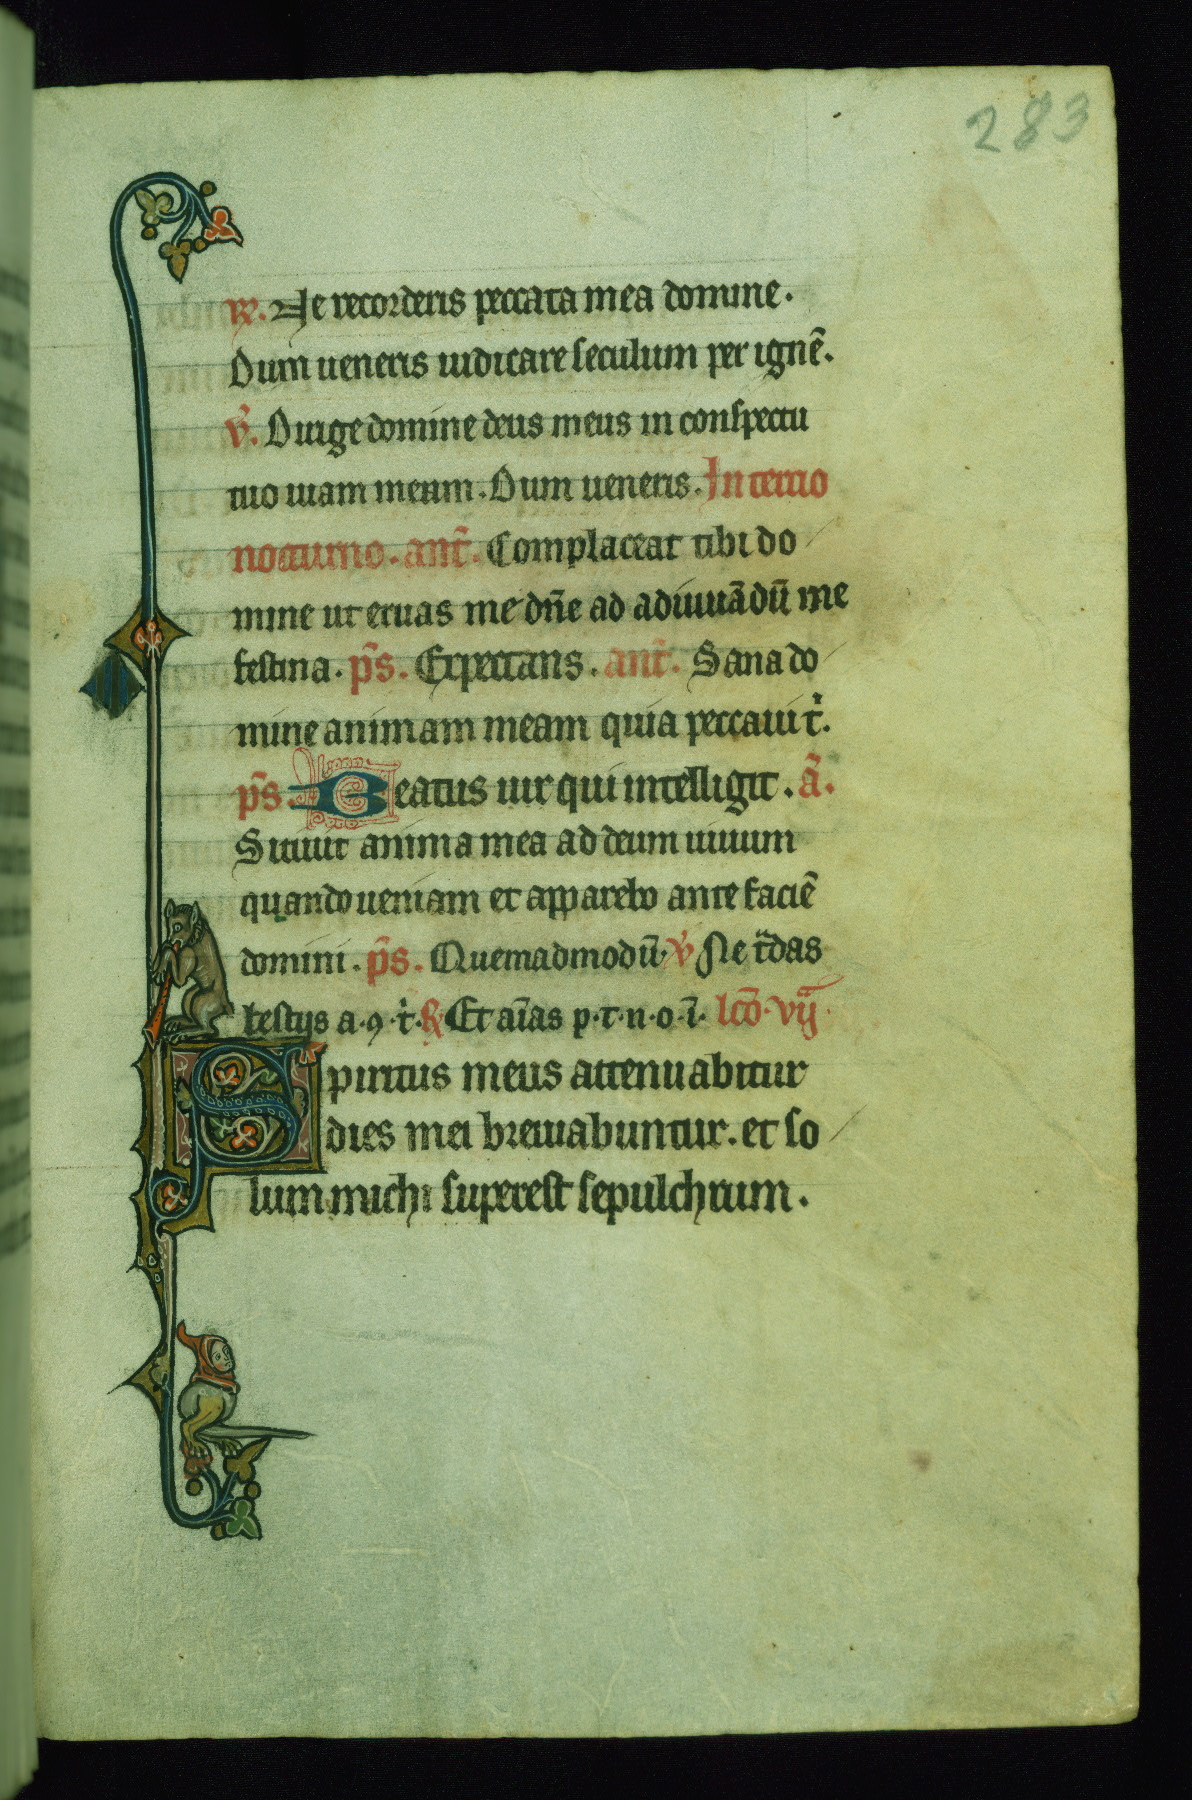 283
R. Ne recorderis peccata mea domine.
Dum ueneris iudicare seculum per ignē.
V̄. Dirige domine deus meus in conspectu
tuo uiam meam. Dum ueneris. In tercio
nocturno. anт̄. Complaceat tibi do
mine ut eruas me dn̄e ad adiuuādū me
festina. ps̄. Expectans. anт̄. Sana do
mine animam meam quia peccaui t̾.
ps̄. Beatus uir qui intelligit. ā.
Sitiuit anima mea ad deum uiuum
quando ueniam et apparebo ante faciē
domini. ps̄. Quemadmodū. V̄ Ne t̄das
bestijs a. ꝯ. t̾. R Et aīas p. t. n. o. ī. lcō. vij
Spiritus meus attenuabitur
dies mei breuiabuntur. et so
lum michi superest sepulchrum.